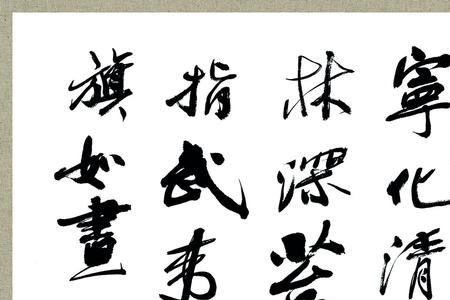 寧化清
林深苔
指武夷
旗如畫